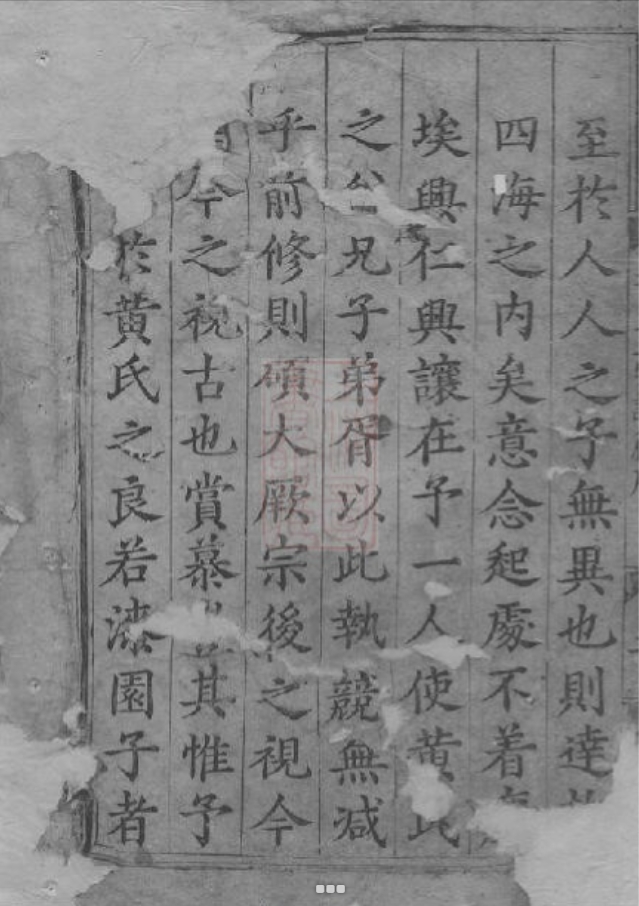 至於人人之子無異也則達於
四海之內矣意念起處不着
埃興仁興讓在予一人使黃氏
之父兄子弟胥以此執競無减
乎前修則碩大厥宗後之視今
今之視古也賞慕其惟予
於黃氏之良若漆園子者